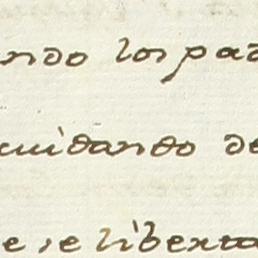 ando los pad
cuidando de
e se liberta